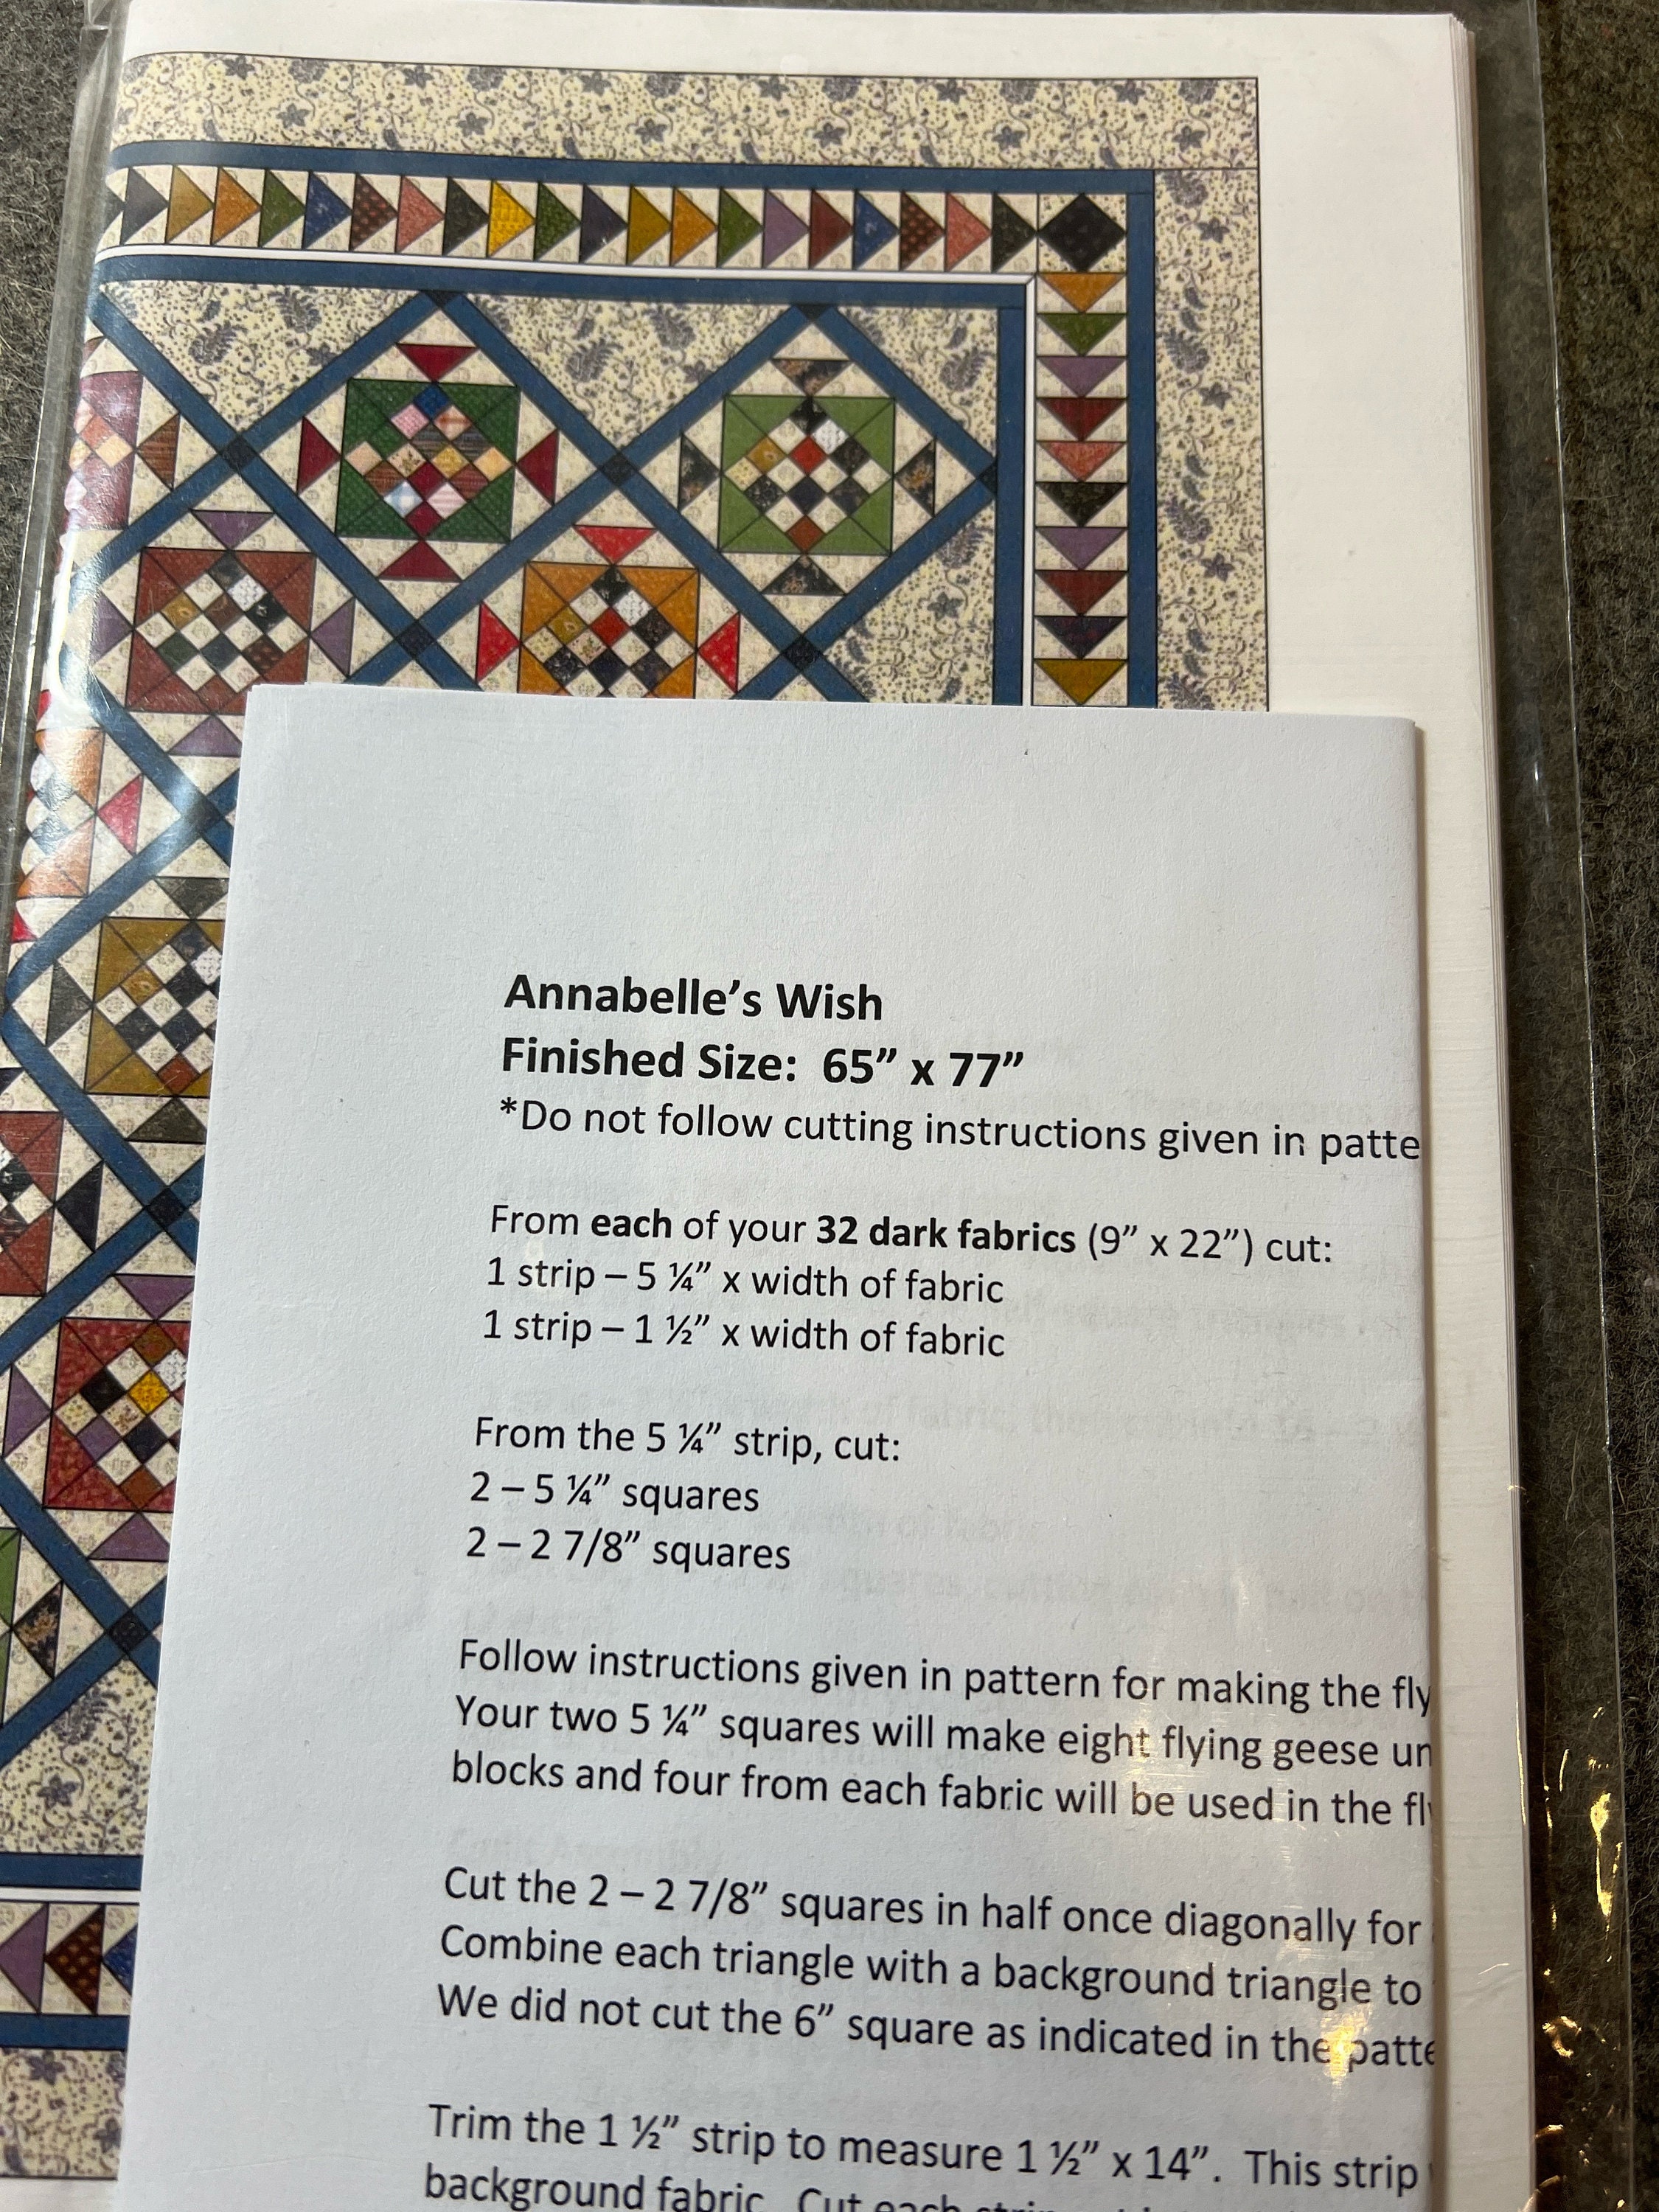 Annabelle’s Wish
Finished Size: 65” x 77”
*Do not follow cutting instructions given in patte
From each of your 32 dark fabrics (9” x 22”) cut:
1 strip – 5 ¼” x width of fabric
1 strip – 1 ½” x width of fabric
From the 5 ¼” strip, cut:
2 – 5 ¼” squares
2 – 2 7/8” squares
Follow instructions given in pattern for making the fly
Your two 5 ¼” squares will make eight flying geese un
blocks and four from each fabric will be used in the fl
Cut the 2 – 2 7/8” squares in half once diagonally for
Combine each triangle with a background triangle to
We did not cut the 6” square as indicated in the patte
Trim the 1 ½” strip to measure 1 ½” x 14”. This strip
background fabric. Cut each